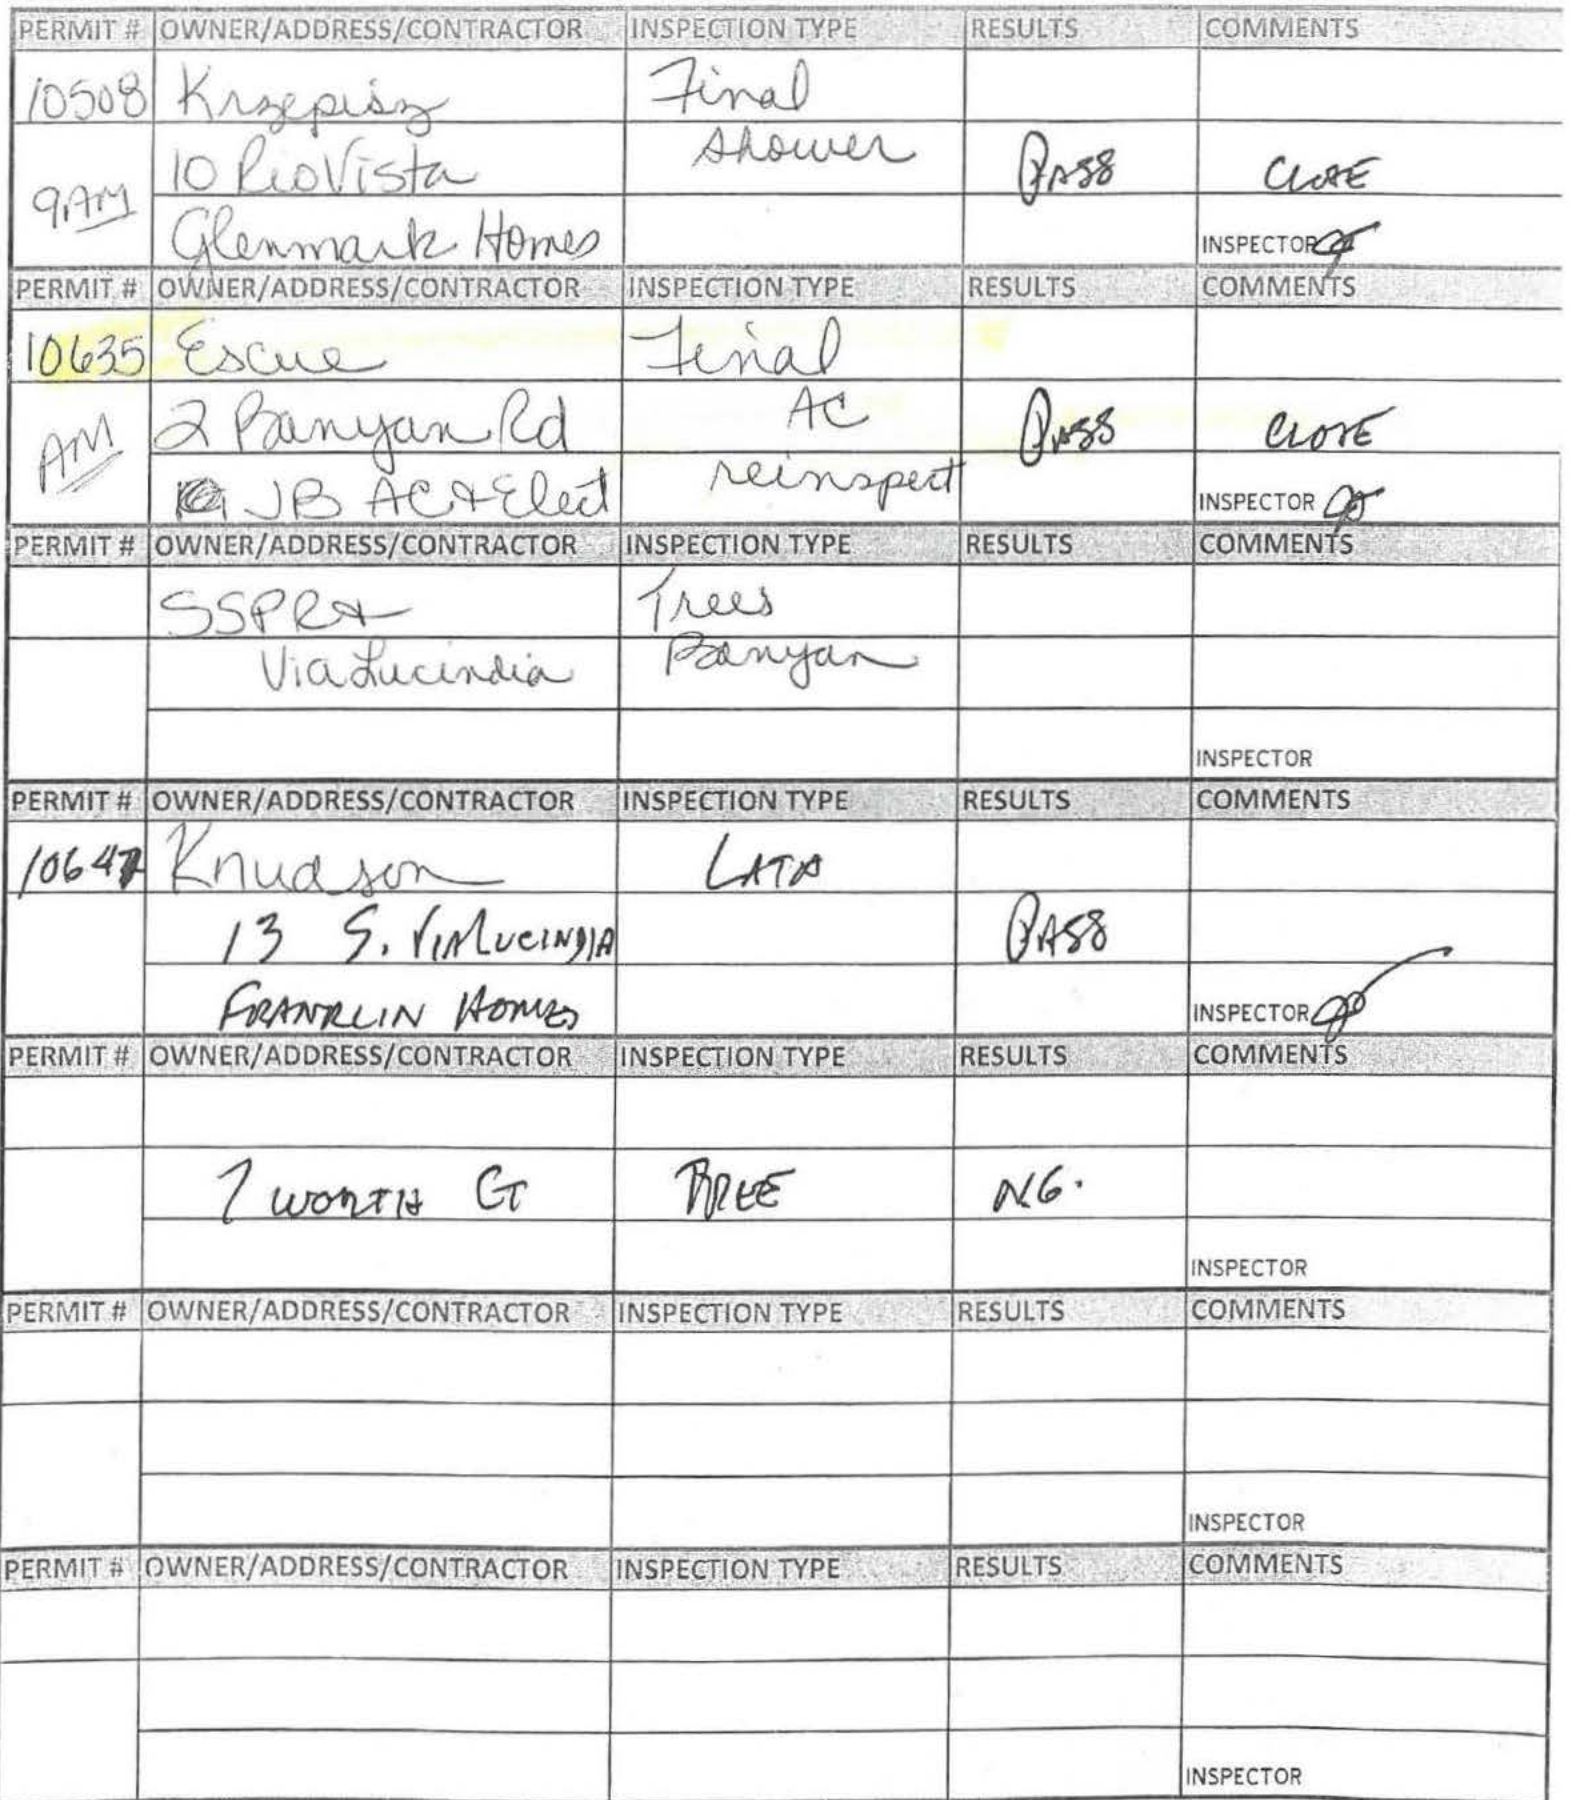 PERMIT # OWNER/ADDRESS/CONTRACTOR INSPECTION TYPE RESULTS COMMENTS
10508 Krzepisz Final
10 Rio Vista shower PASS CLOSE
9AM
Glenmark Homes INSPECTOR
PERMIT # OWNER/ADDRESS/CONTRACTOR INSPECTION TYPE RESULTS COMMENTS
10635 Escue Final
AM 2 Banyan Rd AC PASS CLOSE
JB AC & Elect reinspect INSPECTOR
PERMIT # OWNER/ADDRESS/CONTRACTOR INSPECTION TYPE RESULTS COMMENTS
SSPR & Trees
Via Lucindia Banyan
INSPECTOR
PERMIT # OWNER/ADDRESS/CONTRACTOR INSPECTION TYPE RESULTS COMMENTS
Knudson LATH
13 S. VIA LUCINDIA PASS
FRANKLIN HOMES INSPECTOR
PERMIT # OWNER/ADDRESS/CONTRACTOR INSPECTION TYPE RESULTS COMMENTS
7 WORTH CT TREE N.G.
INSPECTOR
PERMIT # OWNER/ADDRESS/CONTRACTOR INSPECTION TYPE RESULTS COMMENTS
INSPECTOR
PERMIT # OWNER/ADDRESS/CONTRACTOR INSPECTION TYPE RESULTS COMMENTS
INSPECTOR